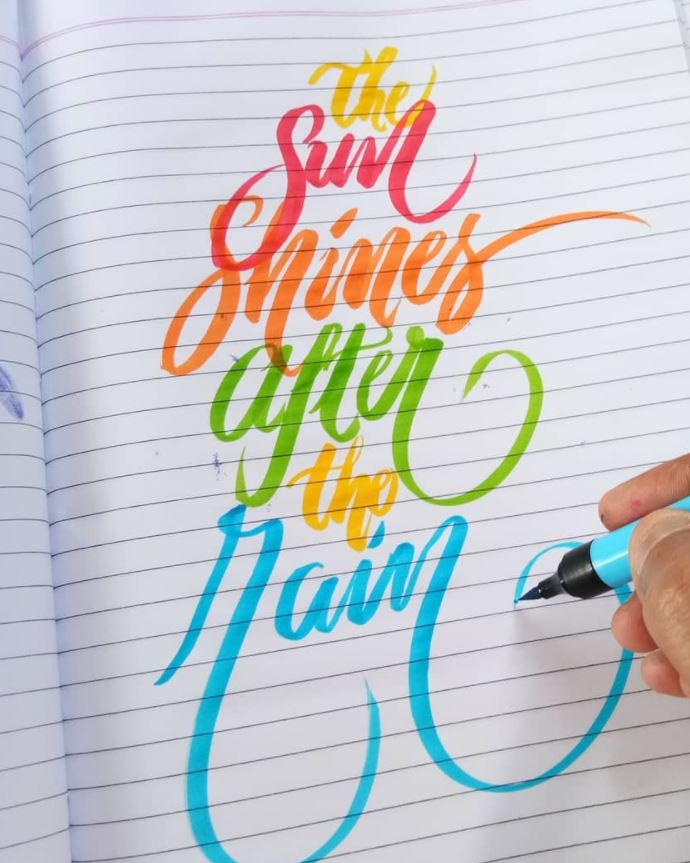 the
Sun
Shines
after
the
rain